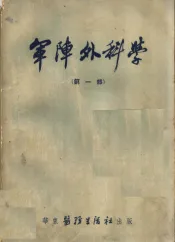 軍陣外科學
(第一輯)
華東醫務生活社出版